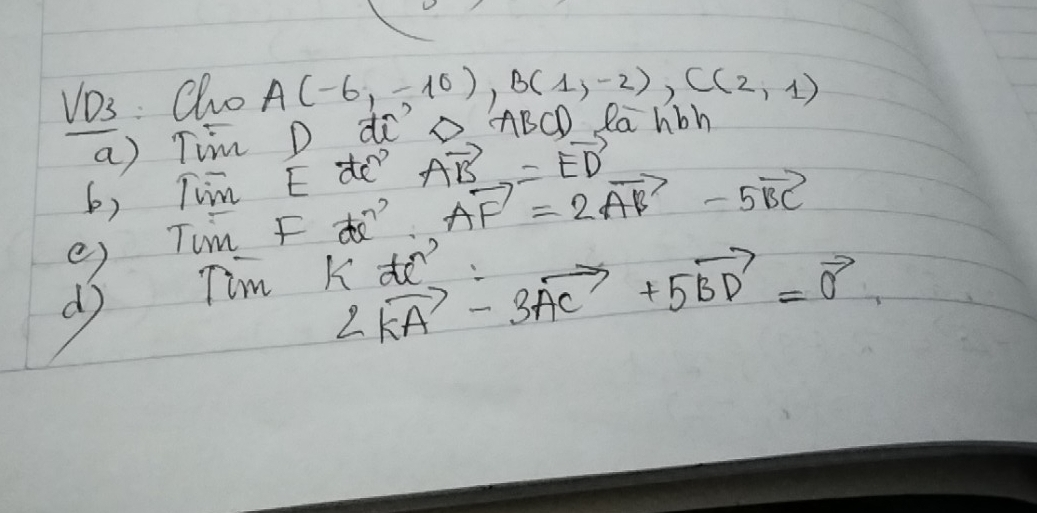 VD3: Cho A(-6; -10), B(1; -2), C(2; 1)
a) Tìm D để ◇ ABCD là hbh
b, Tìm E để $\overrightarrow{AB} = \overrightarrow{ED}$
c) Tìm F để: $\overrightarrow{AF} = 2\overrightarrow{AB} - 5\overrightarrow{BC}$
d) Tìm K để:
$2\overrightarrow{KA} - 3\overrightarrow{AC} + 5\overrightarrow{BD} = \overrightarrow{0}$.